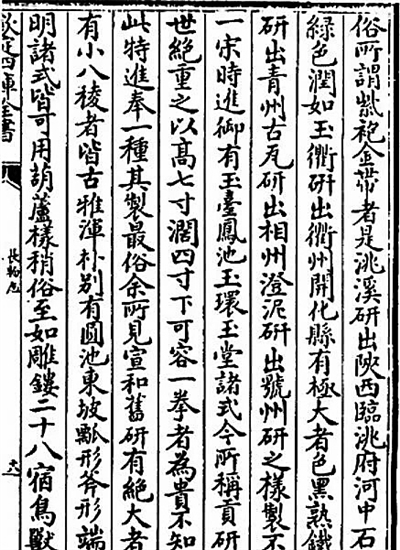 俗所謂紫袍金帶者是洮溪研出陝西臨洮府河中石
緑色潤如玉衢研出衢州開化縣有極大者色黑熟鐵
研出青州古瓦研出相州澄泥研出虢州研之樣製不
一宋時進御有玉臺鳳池玉環玉堂諸式今所稱貢研
世絶重之以髙七寸濶四寸下可容一拳者為貴不知
此特進奉一種其製最俗余所見宣和舊研有絶大者
有小八稜者皆古雅渾朴别有圓池東坡瓢形斧形端
明諸式皆可用葫蘆樣稍俗至如雕鏤二十八宿鳥獸
欽定四庫全書
長物志